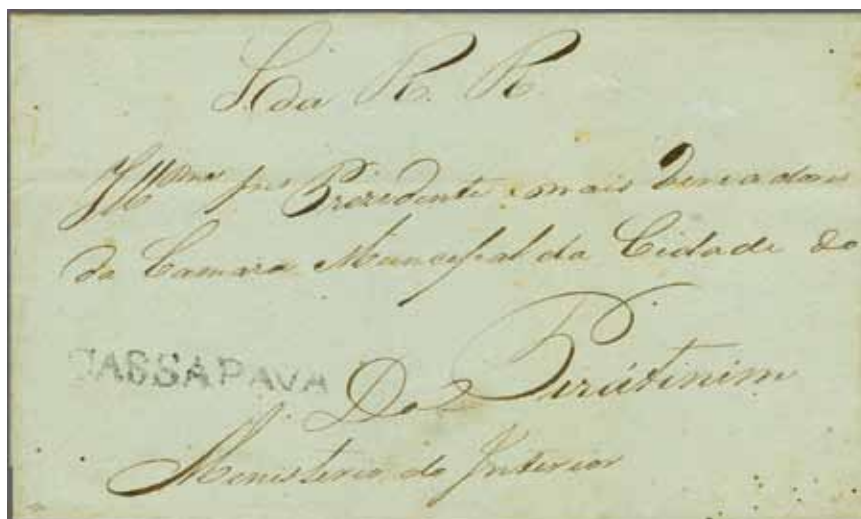 S. da R. R.
Ill.mos Snrs Prezidente e mais Vereadores
da Camara Municipal da Cidade de
CASSAPAVA
Do Piratinim
Menisterio do Interior